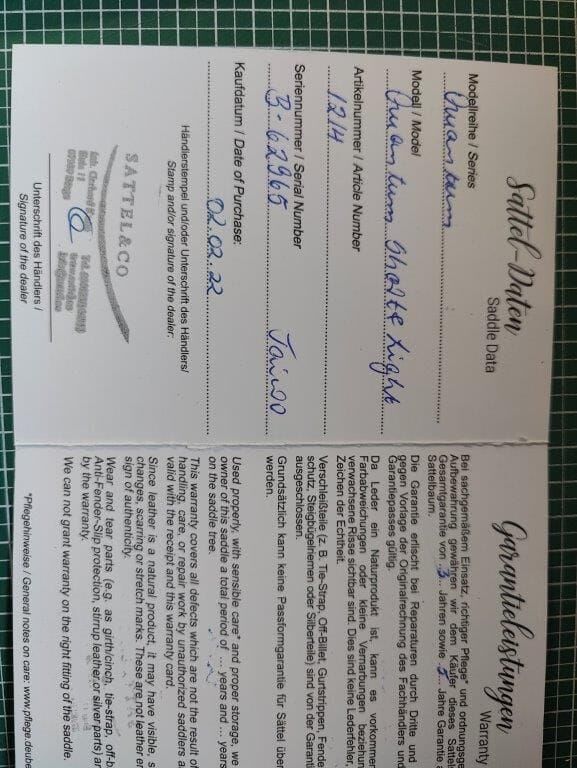 Sattel-Daten
Saddle Data
Modellreihe / Series
Quantum
Modell / Model
Quantum Shorte Light
Artikelnummer / Article Number
1214
Seriennummer / Serial Number
B-62965
Kaufdatum / Date of Purchase:
02.02.22
Händlerstempel und/oder Unterschrift des Händlers/
Stamp and/or signature of the dealer:
SATTEL&CO
Unterschrift des Händlers /
Signature of the dealer
Garantieleistungen
Warranty
Bei sachgemäßem Einsatz, richtiger Pflege* und ordnungsge
Aufbewahrung gewähren wir dem Käufer dieses Sattel
Gesamtgarantie von 3 Jahren sowie 5 Jahre Garantie
Sattelbaum.
Die Garantie erlischt bei Reparaturen durch Dritte und
gegen Vorlage der Originalrechnung des Fachhändlers und
Garantiepasses gültig.
Da Leder ein Naturprodukt ist, kann es vorkommen
Farbabweichungen oder kleine Vernarbungen, beziehung
verwachsene Risse sichtbar sind. Dies sind keine Lederfehler,
Zeichen der Echtheit.
Verschleißteile (z. B. Tie-Strap, Off-Billet, Gurtstrippen, Fende
schutz, Steigbügelriemen oder Silberteile) sind von der Garanti
ausgeschlossen.
Grundsätzlich kann keine Passformgarantie für Sättel über
werden.
Used properly, with sensible care* and proper storage, we
owner of this saddle a total period of ... years and ... years
on the saddle tree.
This warranty covers all defects which are not the result of
handling, care or repair work by unauthorized saddlers a
valid with the receipt and this warranty card.
Since leather is a natural product, it may have visible, s
changes, scarring or stretch marks. These are not leather er
sign of authenticity.
Wear and tear parts (e.g. as girth/cinch, tie-strap, off-b
Anti-Fender-Slip protection, stirrup leather or silver parts) ar
by the warranty.
We can not grant warranty on the right fitting of the saddle.
*Pflegehinweise / General notes on care: www.pflege.deube